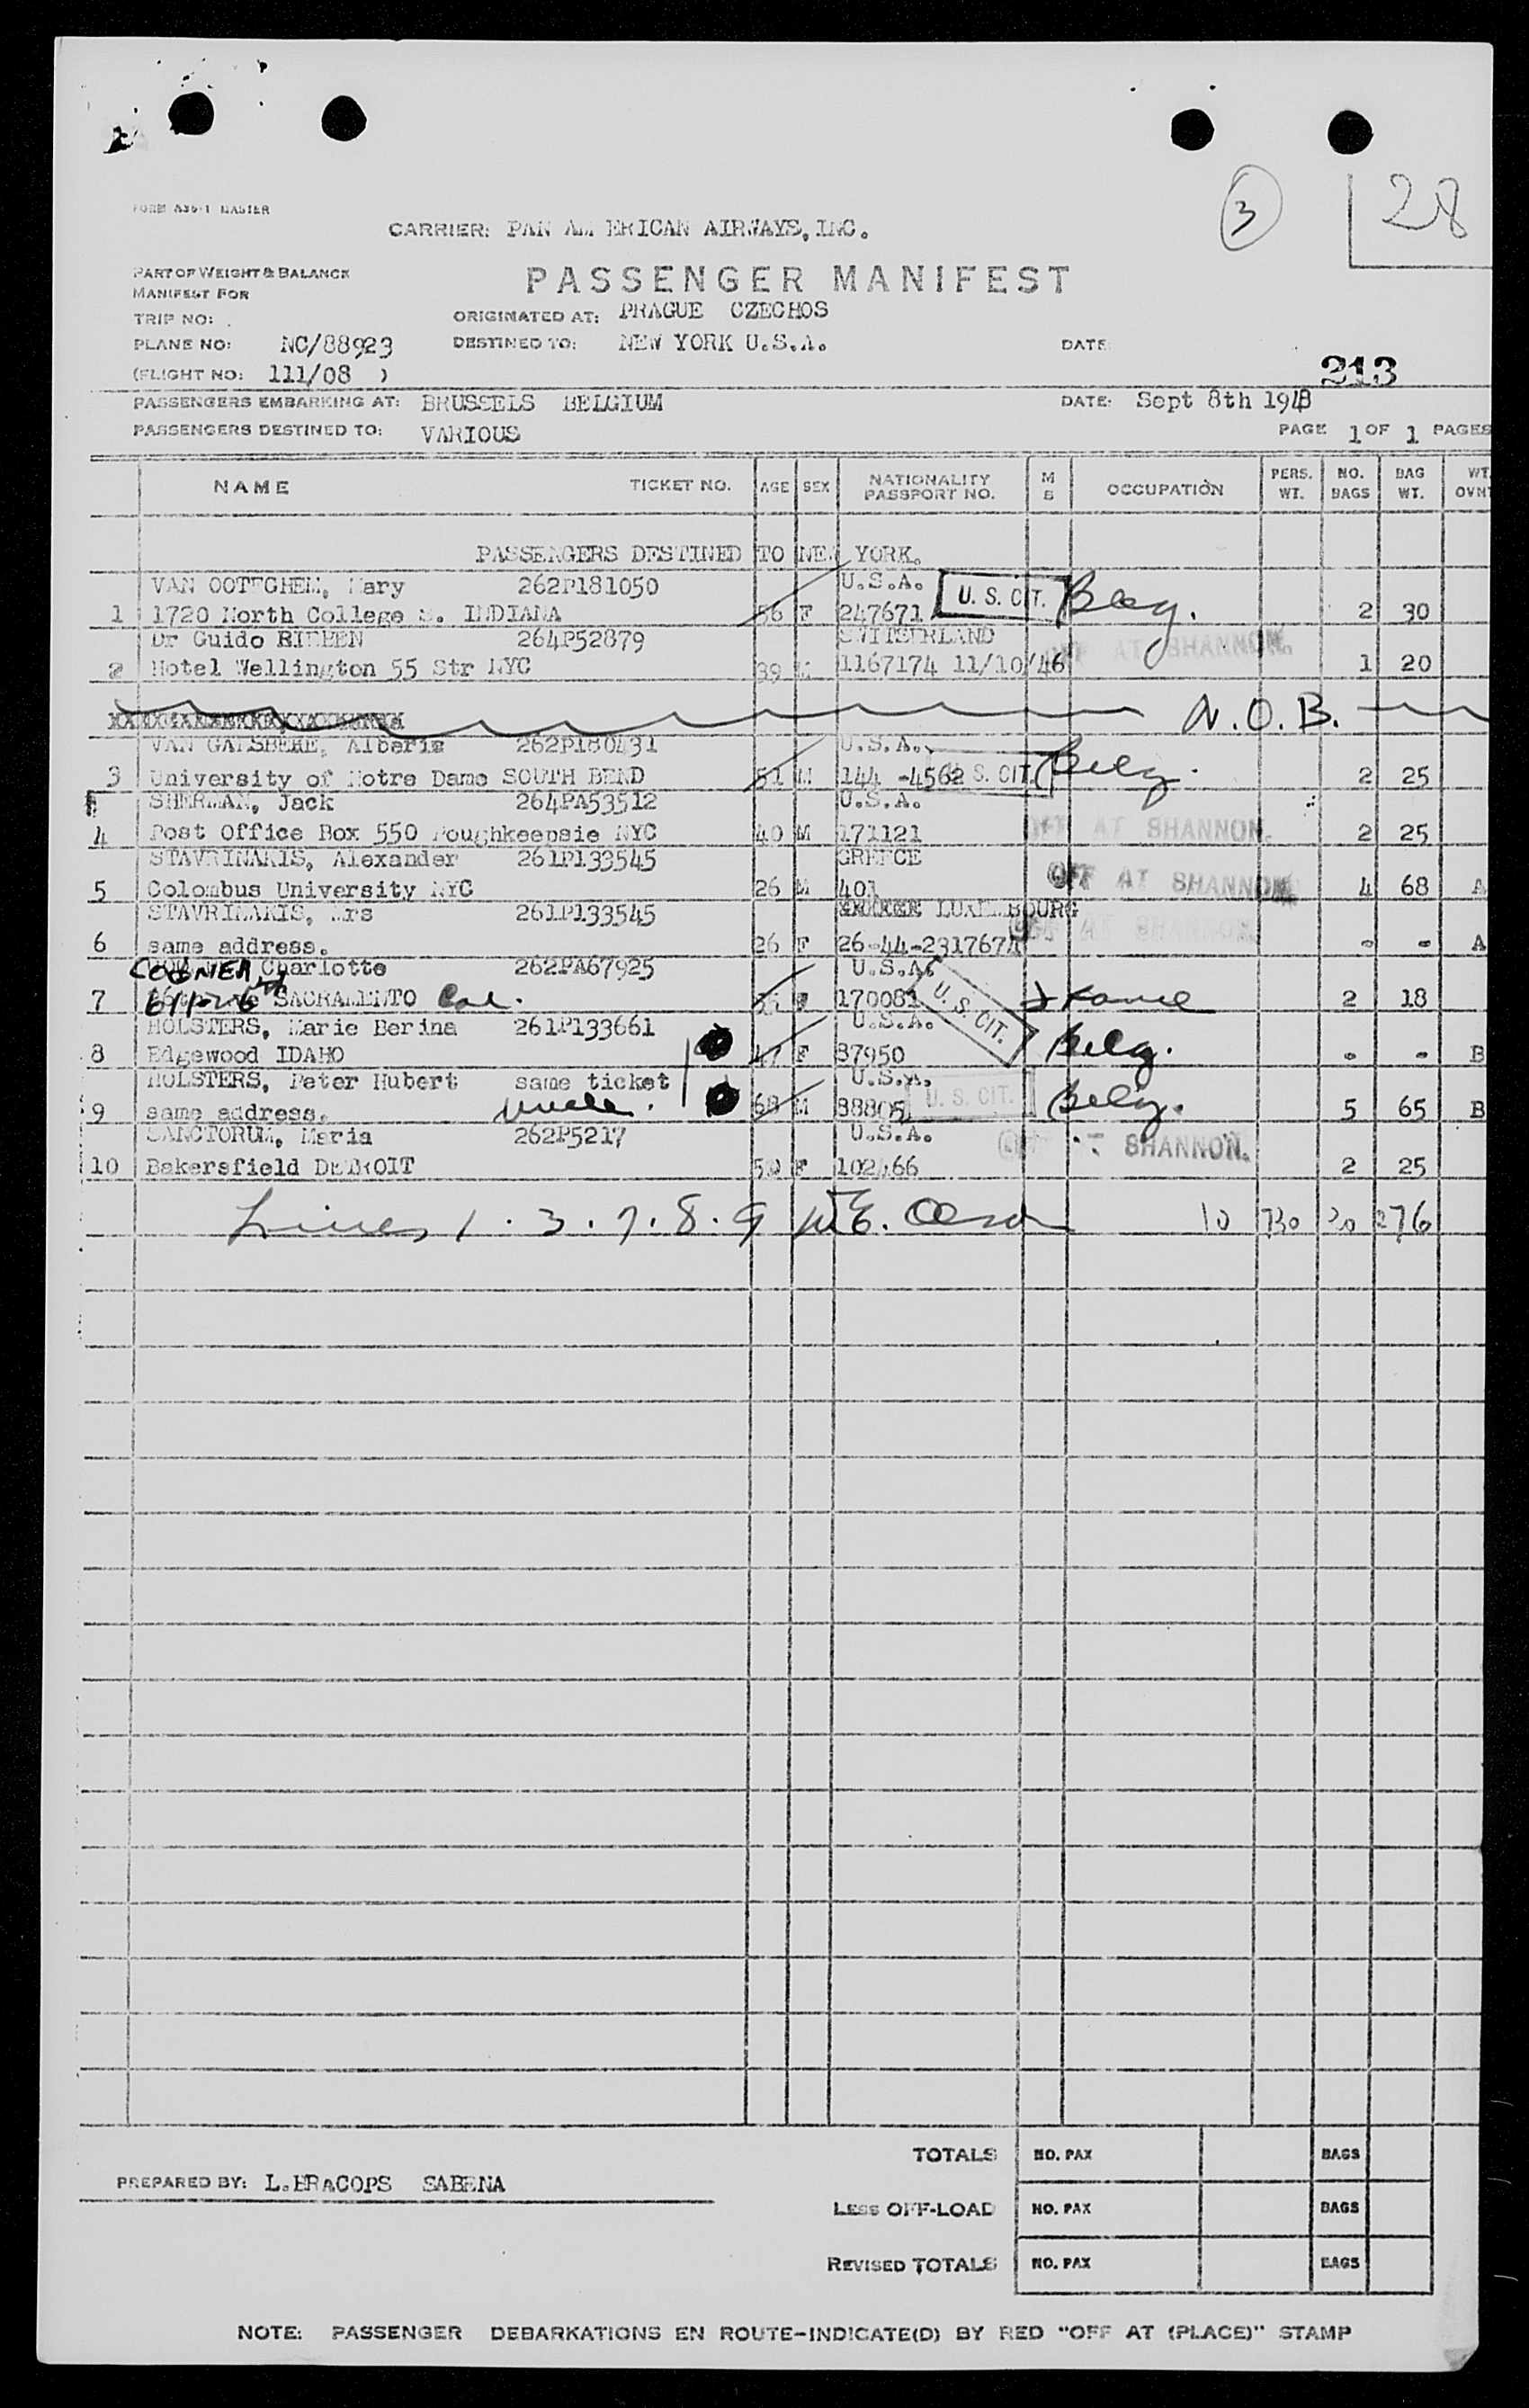 3
28
FORM
CARRIER: PAN AM ERICAN AIRWAYS, INC.
PART OF WEIGHT & BALANCE
MANIFEST FOR
PASSENGER MANIFEST
TRIP NO:
ORIGINATED AT: PRAGUE CZECHOS
PLANE NO: NC/88923
DESTINED TO: NEW YORK U.S.A.
DATE
(FLIGHT NO: 111/08 )
213
PASSENGERS EMBARKING AT: BRUSSELS BELGIUM
DATE: Sept 8th 1948
PASSENGERS DESTINED TO: VARIOUS
PAGE 1 OF 1 PAGES
NAME TICKET NO. AGE SEX NATIONALITY PASSPORT NO. M S OCCUPATION PERS. WT. NO. BAGS BAG WT. WT. OVNT
PASSENGERS DESTINED TO NEW YORK.
VAN OOTEGHEM, Mary 262P181050 U.S.A.
1 1720 North College S. INDIANA 56 F 247671 U. S. CIT. Belg. 2 30
Dr Guido 264P52879 SWITSERLAND
2 Hotel Wellington 55 Str NYC 39 M 1167174 11/10/46 OFF AT SHANNON. 1 20
N.O.B.
VAN 262P180431 U.S.A.
3 University of Notre Dame SOUTH BEND 51 M 144 -4562 U. S. CIT. Belg. 2 25
SHERMAN, Jack 264PA53512 U.S.A.
4 Post Office Box 550 Poughkeepsie NYC 40 M 171121 OFF AT SHANNON. 2 25
STAVRINAKIS, Alexander 261P133545 GREECE
5 Colombus University NYC 26 M 401 OFF AT SHANNON 4 68 A
STAVRINAKIS, Mrs 261P133545 LUXEMBOURG
6 same address. 26 F 26-44-231767 OFF AT SHANNON. - - A
Charlotte 262PA67925 U.S.A.
7 SACRAMENTO Cal. F 170081 U. S. CIT. 2 18
HOLSTERS, Marie Berina 261P133661 U.S.A.
8 Edgewood IDAHO 47 F 87950 Belg. - - B
HOLSTERS, Peter Hubert same ticket U.S.A.
9 same address. uncle. 68 M 88805 U. S. CIT. Belg. 5 65 B
SANCTORUM, Maria 262P5217 U.S.A.
10 Bakersfield DETROIT F 102466 SHANNON. 2 25
Lines 1. 3. 7. 8. 9 10 730 20 276
TOTALS NO. PAX BAGS
PREPARED BY: L.BRACOPS SABENA
LESS OFF-LOAD NO. PAX BAGS
REVISED TOTALS NO. PAX BAGS
NOTE: PASSENGER DEBARKATIONS EN ROUTE-INDICATE(D) BY RED "OFF AT (PLACE)" STAMP